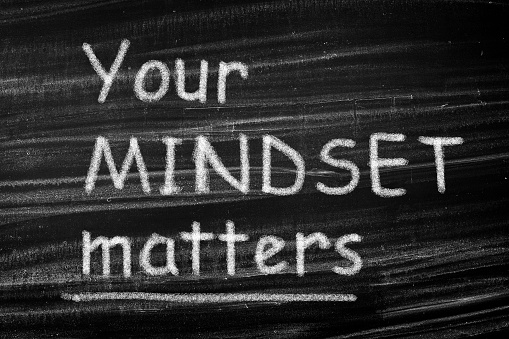 Your
MINDSET
matters